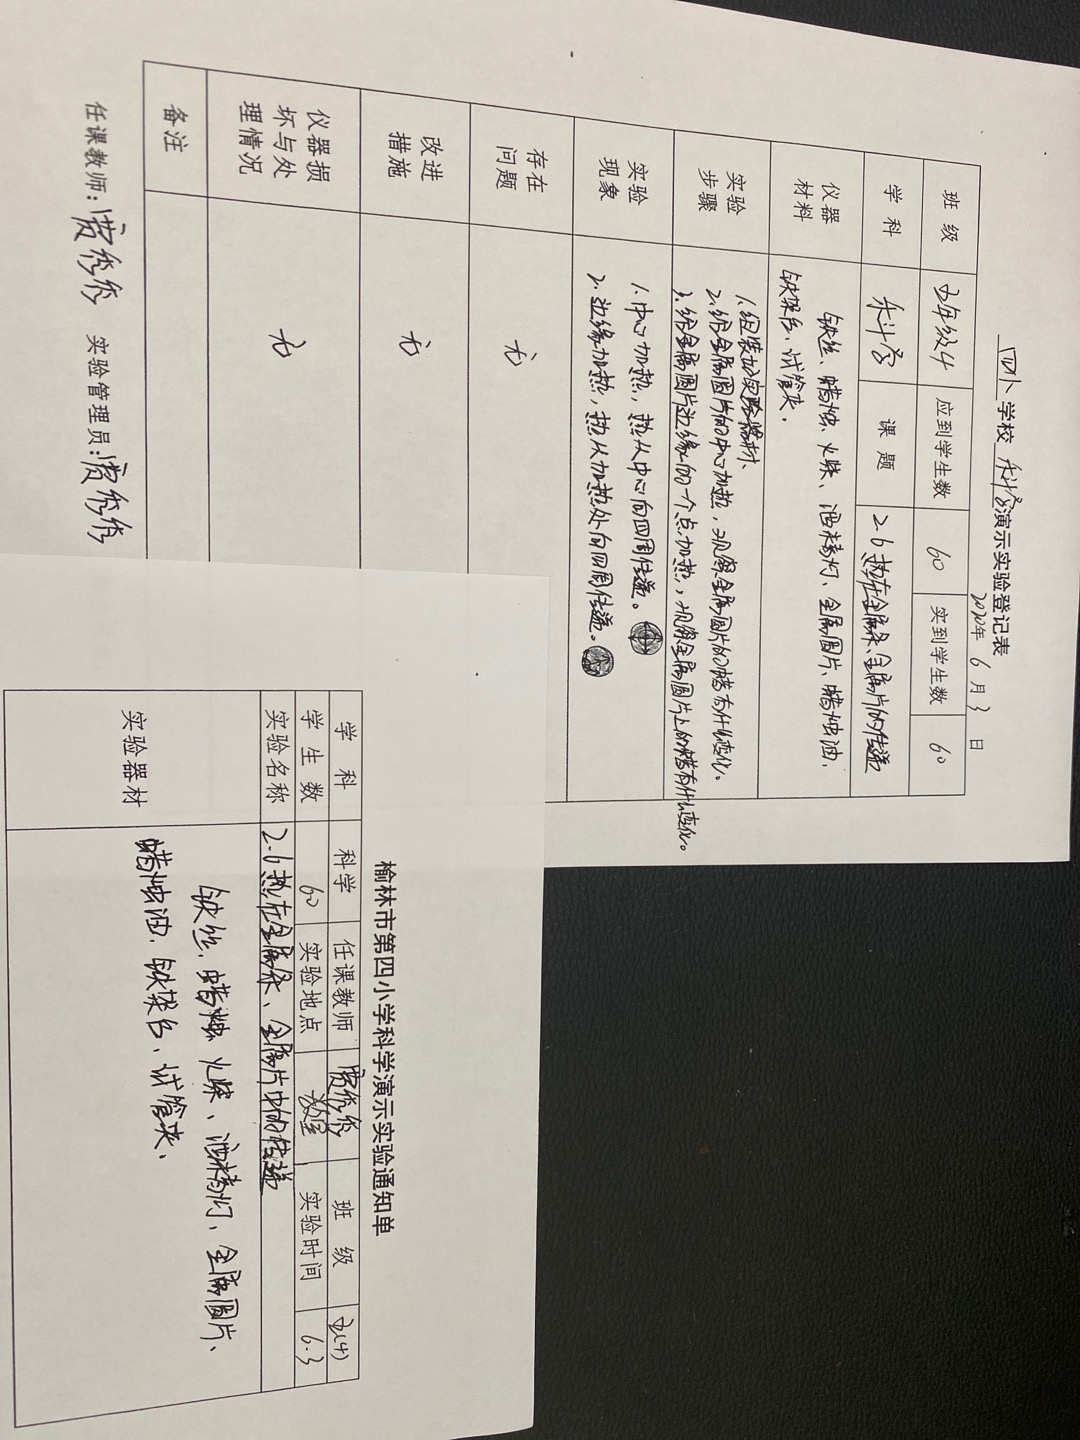 四小学校科学演示实验登记表
2020年6月3日
班级 五年级4 应到学生数 60 实到学生数 60
学科 科学 课题 2.6热在金属条、金属片的传递
仪器材料 铁丝、蜡烛、火柴、酒精灯、金属圆片、蜡烛油、
铁架台、试管夹。
实验步骤 1.组装好实验器材、
2.给金属圆片的中心加热,观察金属圆片的蜡有什么变化。
3.给金属圆片边缘的一个点加热,观察金属圆片上的蜡有什么变化。
实验现象 1.中心加热,热从中心向四周传递。
2.边缘加热,热从加热处向四周传递。
存在问题 无
改进措施 无
仪器损坏与处理情况 无
备注
任课教师: 实验管理员:
榆林市第四小学科学演示实验通知单
学科 科学 任课教师 班级 五(4)
学生数 60 实验地点 教室 实验时间 6.3
实验名称 2.6热在金属条、金属片中的传递
实验器材 铁丝、蜡烛、火柴、酒精灯、金属圆片、
蜡烛油、铁架台、试管夹、